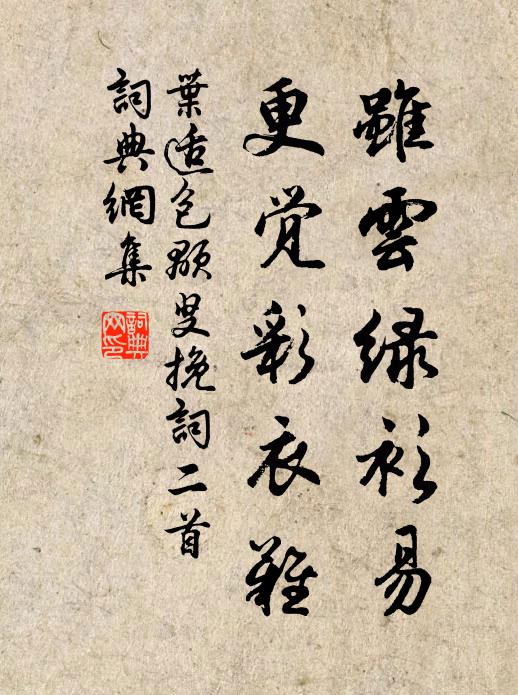 雖雲緑衫易
更覚彩衣難
葉适包顒叟挽詞二首
詞典網集
詞典
网印